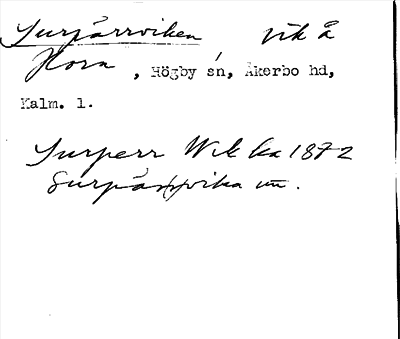 Surpärrviken, vik å
Horn, Högby sn, Åkerbo hd,
Kalm. l.
Surperr Wik ka 1872
Surpärrvika un.